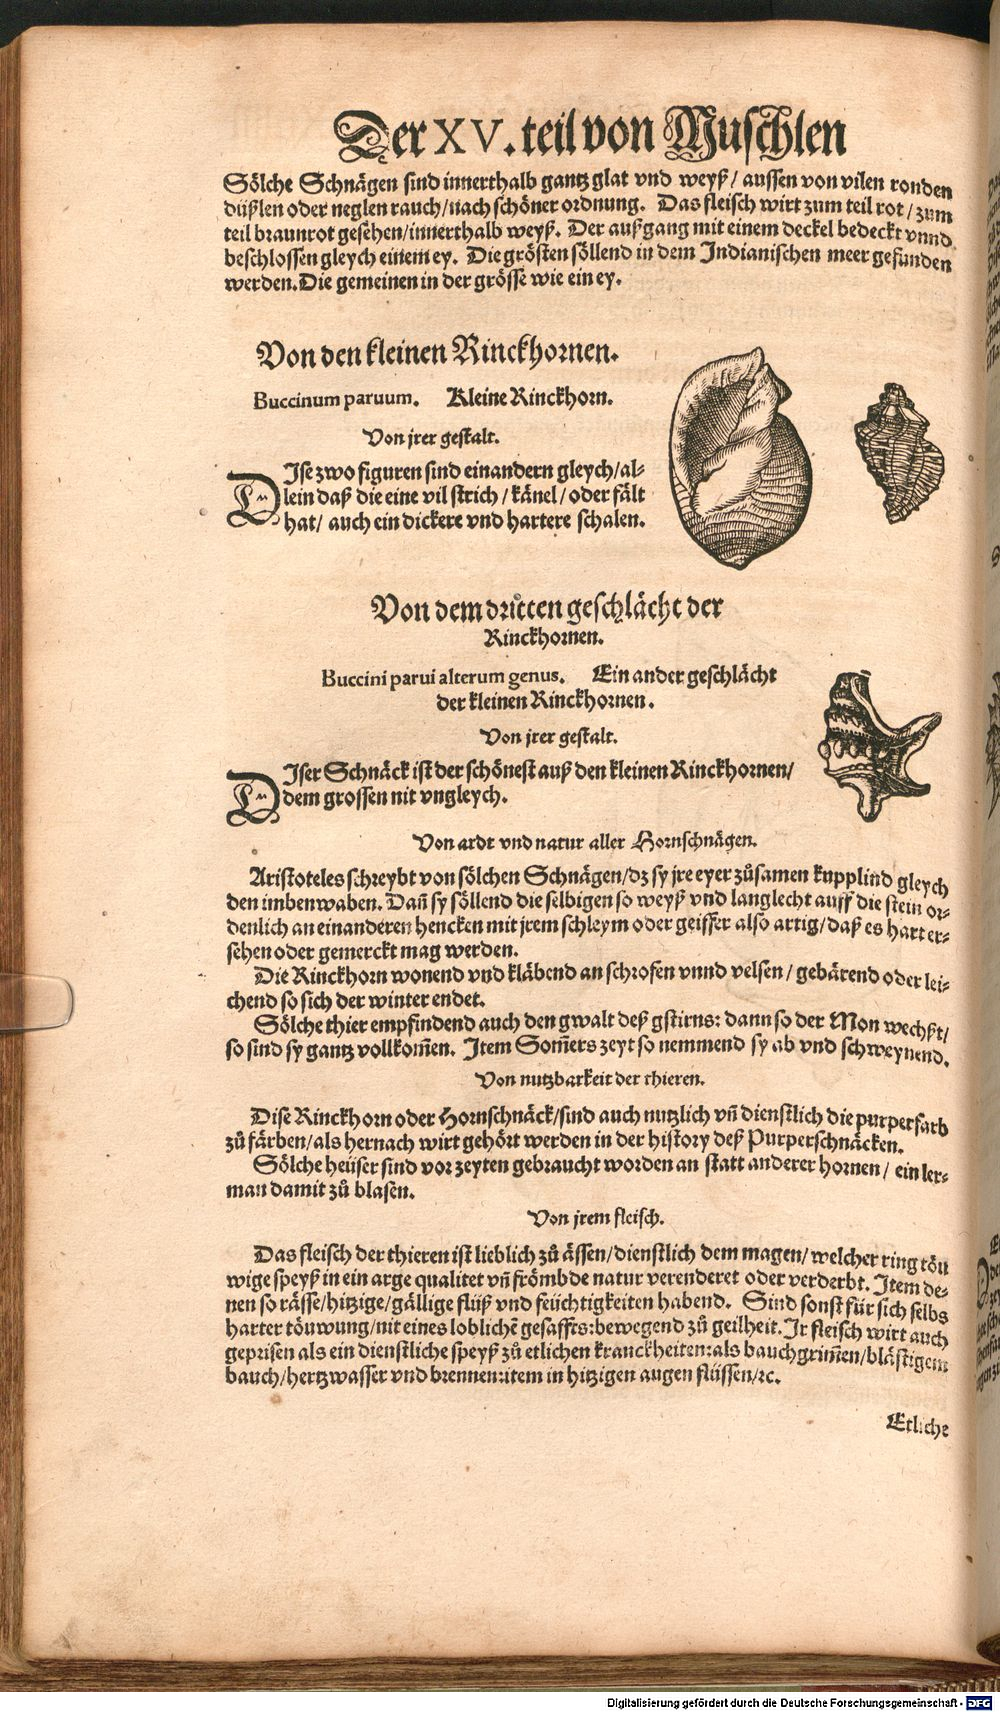 Der XV. teil von Muschlen
Sölche Schnägen sind innerthalb gantz glat vnd weyß / aussen von vilen ronden
düßlen oder neglen rauch / nach schöner ordnung. Das fleisch wirt zum teil rot / zum
teil braunrot gesehen / innerthalb weyß. Der außgang mit einem deckel bedeckt vnnd
beschlossen gleych einem ey. Die grösten söllend in dem Indianischen meer gefunden
werden. Die gemeinen in der grösse wie ein ey.
Von den kleinen Rinckhornen.
Buccinum paruum. Kleine Rinckhorn.
Von jrer gestalt.
DIse zwo figuren sind einandern gleych / al-
lein daß die eine vil strich / känel / oder fält
hat / auch ein dickere vnd hartere schalen.
Von dem dritten geschlächt der
Rinckhornen.
Buccini parui alterum genus. Ein ander geschlächt
der kleinen Rinckhornen.
Von jrer gestalt.
DIser Schnäck ist der schönest auß den kleinen Rinckhornen /
dem grossen nit vngleych.
Von ardt vnd natur aller Hornschnägen.
Aristoteles schreybt von sölchen Schnägen / dz sy jre eyer zůsamen kupplind gleych
den imbenwaben. Dañ sy söllend die selbigen so weyß vnd langlecht auff die stein or-
denlich an einanderen hencken mit jrem schleym oder geiffer also artig / daß es hart er-
sehen oder gemerckt mag werden.
Die Rinckhorn wonend vnd kläbend an schrofen vnnd velsen / gebärend oder lei-
chend so sich der winter endet.
Sölche thier empfindend auch den gwalt deß gstirns: dann so der Mon wechßt /
so sind sy gantz vollkom̃en. Item Som̃ers zeyt so nemmend sy ab vnd schweynend.
Von nutzbarkeit der thieren.
Dise Rinckhorn oder Hornschnäck / sind auch nutzlich vñ dienstlich die purperfarb
zů färben / als hernach wirt gehört werden in der history deß Purperschnäcken.
Sölche heüser sind vor zeyten gebraucht worden an statt anderer hornen / ein ler-
man damit zů blasen.
Von jrem fleisch.
Das fleisch der thieren ist lieblich zů ässen / dienstlich dem magen / welcher ring töu
wige speyß in ein arge qualitet vñ frömbde natur verenderet oder verderbt. Item de-
nen so rässe / hitzige / gällige flüß vnd feüchtigkeiten habend. Sind sonst für sich selbs
harter töuwung / nit eines loblichẽ gesaffts: bewegend zů geilheit. Ir fleisch wirt auch
geprisen als ein dienstliche speyß zů etlichen kranckheiten: als bauchgrim̃en / blästigem
bauch / hertzwasser vnd brennen: item in hitzigen augen flüssen / ꝛc.
Etliche
Digitalisierung gefördert durch die Deutsche Forschungsgemeinschaft - DFG